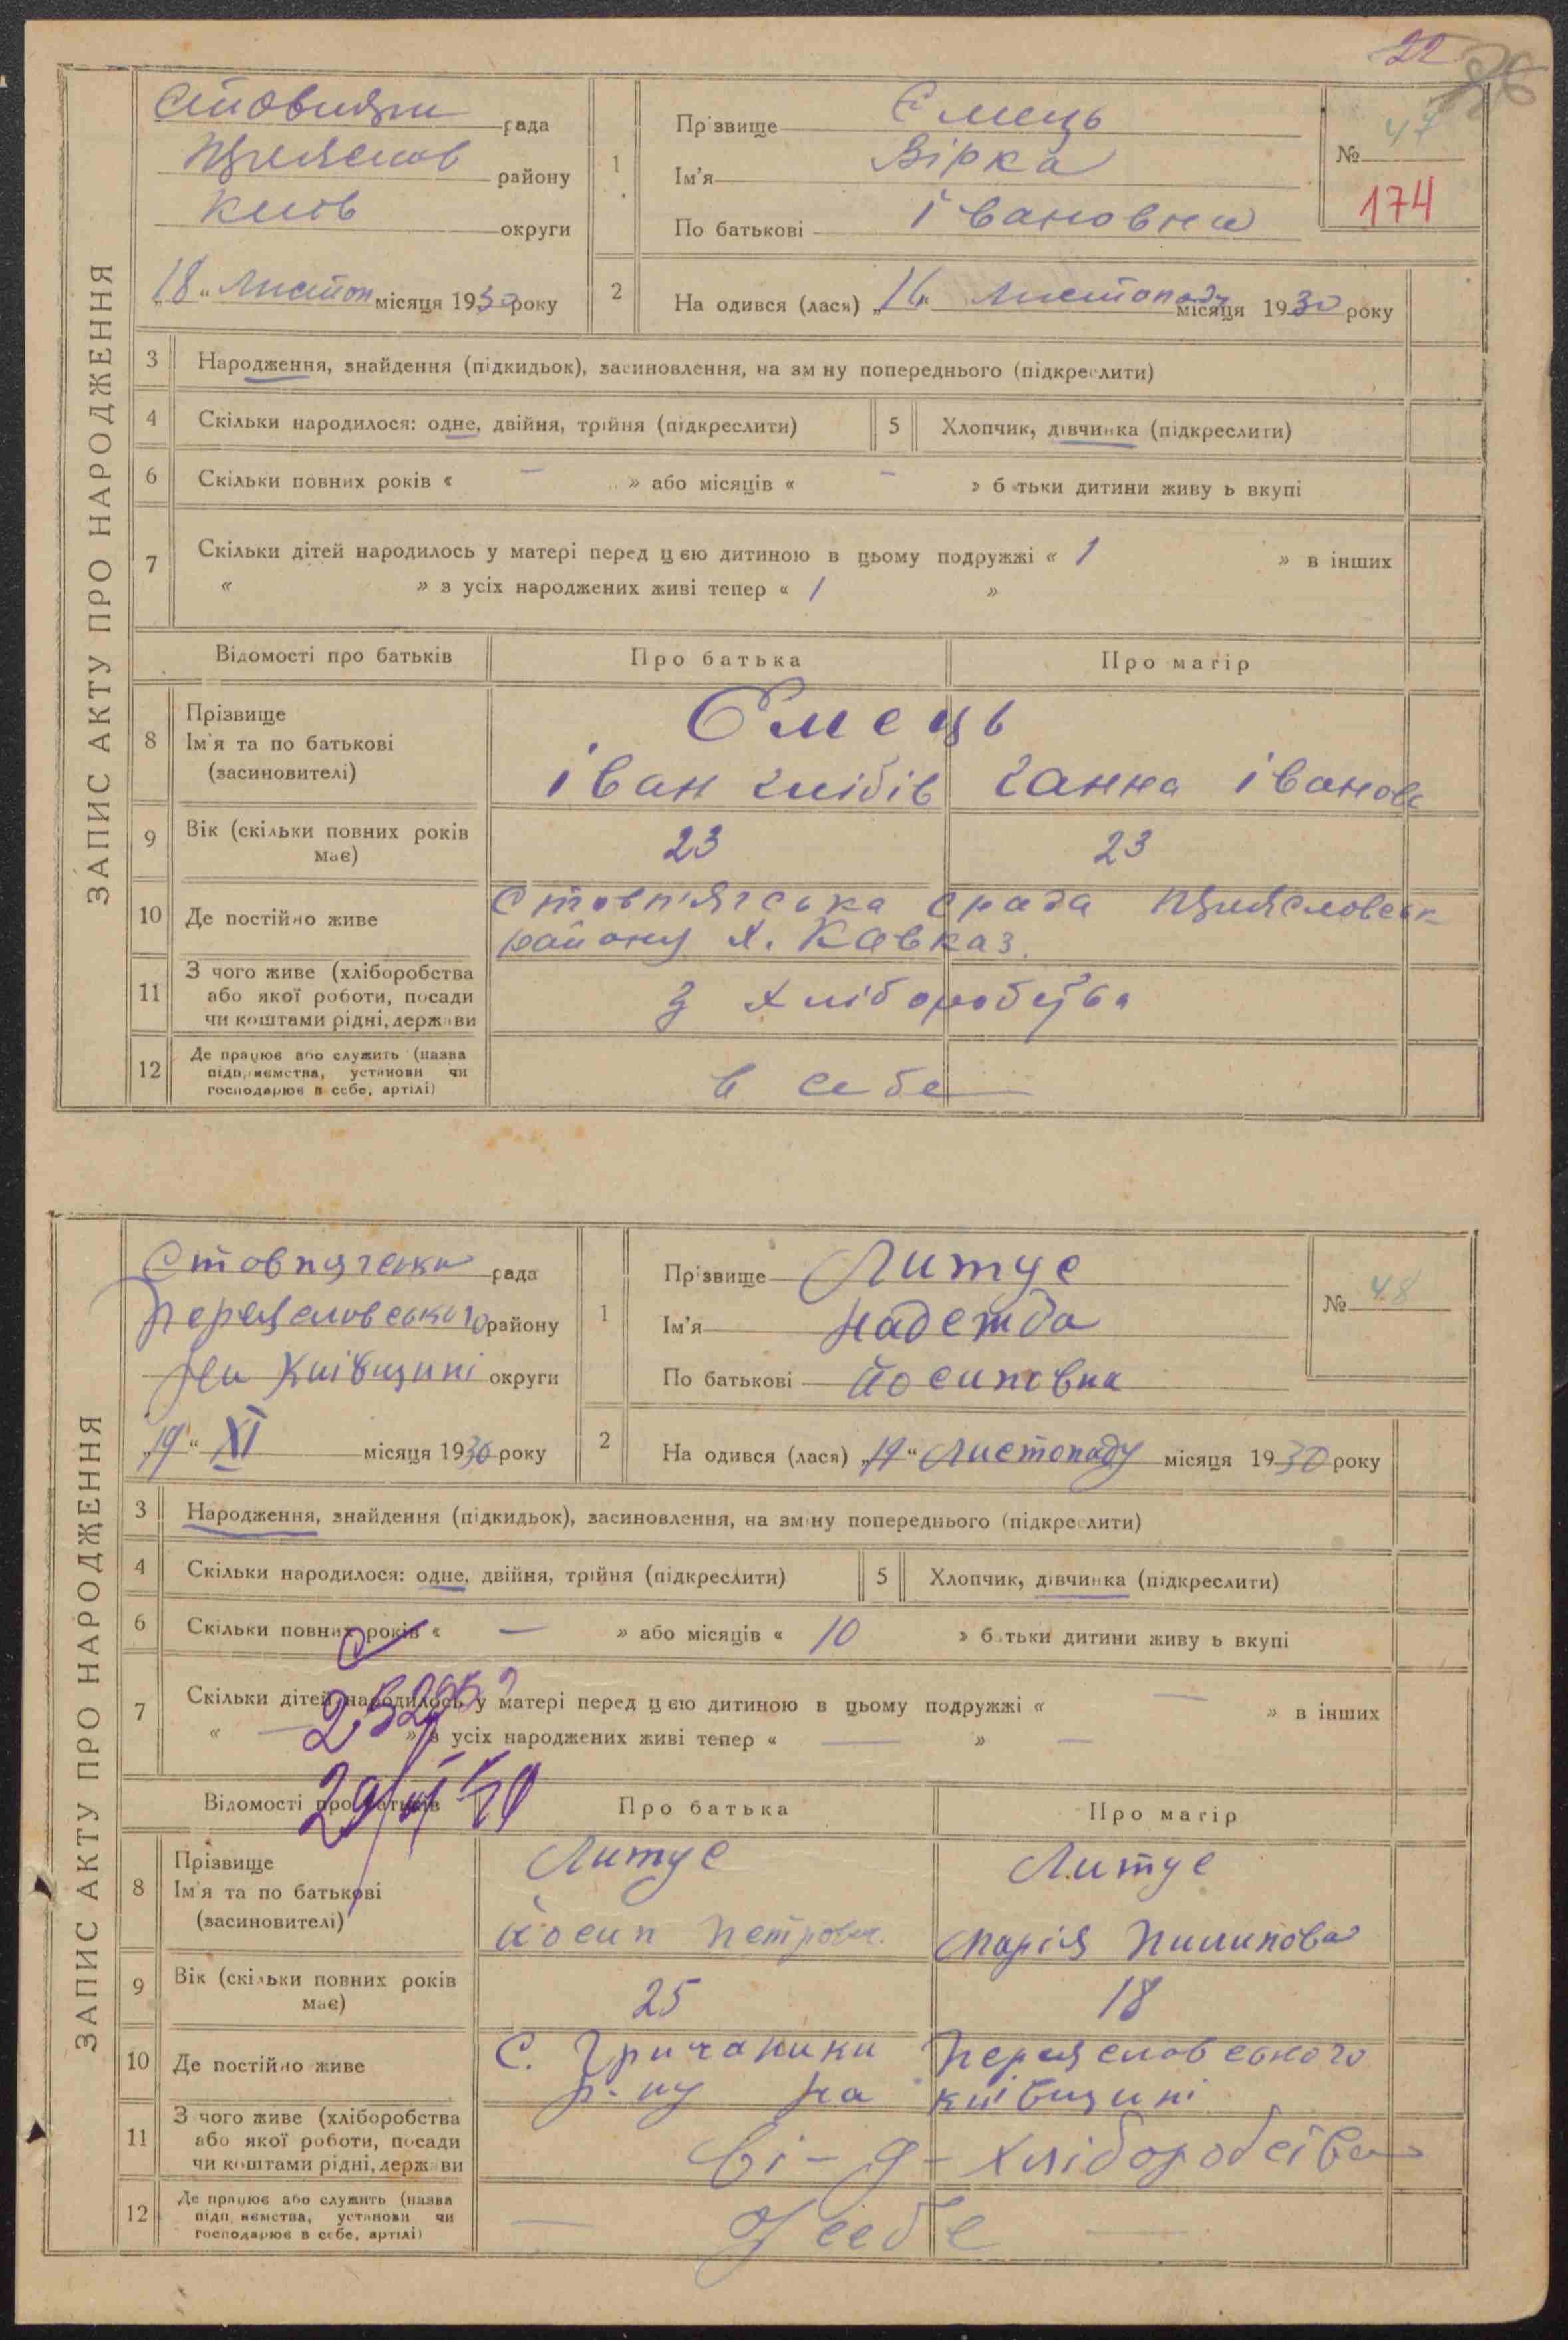 22
ЗАПИС АКТУ ПРО НАРОДЖЕННЯ
Стовпязи рада
району
Киів округи
„18“ Листоп місяця 1930 року
1
Прізвище Ємець
Ім'я Вірка
По батькові Івановна
№ 47
174
2
На одився (лася) „16“ Листопаду місяця 1930 року
3 Народження, знайдення (підкидьок), засиновлення, на зміну попереднього (підкреслити)
4 Скільки народилося: одне, двійня, трійня (підкреслити)
5 Хлопчик, дівчинка (підкреслити)
6 Скільки повних років « — » або місяців « — » батьки дитини живуть вкупі
7 Скільки дітей народилось у матері перед цією дитиною в цьому подружжі « 1 » в інших
« » з усіх народжених живі тепер « 1 »
Відомості про батьків Про батька Про матір
8 Прізвище
Ім'я та по батькові
(засиновителі)
Ємець
Іван Глібів Ганна Іванова
9 Вік (скільки повних років має) 23 23
10 Де постійно живе
Стовп'ягська срада
району х. Кавказ.
11 З чого живе (хліборобства
або якої роботи, посади
чи коштами рідні, держави
з хліборобства
12 Де працює або служить (назва
підприємства, установи чи
господарює в себе, артілі)
в себе
ЗАПИС АКТУ ПРО НАРОДЖЕННЯ
Стовпягська рада
Переяславського району
на Київщині округи
„19“ XI місяця 1930 року
1
Прізвище Литус
Ім'я Надежда
По батькові Йосиповна
№ 48
2
На одився (лася) „19“ Листопаду місяця 1930 року
3 Народження, знайдення (підкидьок), засиновлення, на зміну попереднього (підкреслити)
4 Скільки народилося: одне, двійня, трійня (підкреслити)
5 Хлопчик, дівчинка (підкреслити)
6 Скільки повних років « — » або місяців « 10 » батьки дитини живуть вкупі
7 Скільки дітей народилось у матері перед цією дитиною в цьому подружжі « — » в інших
« — » з усіх народжених живі тепер « — » —
Відомості про батьків Про батька Про матір
8 Прізвище
Ім'я та по батькові
(засиновителі)
Литус Литус
Йосип Петрович. Марія Пилипова
9 Вік (скільки повних років має) 25 18
10 Де постійно живе
С. Гричаники Переяславського
р-ну на Київщині
11 З чого живе (хліборобства
або якої роботи, посади
чи коштами рідні, держави
хліборобства
12 Де працює або служить (назва
підприємства, установи чи
господарює в себе, артілі)
— У себе —